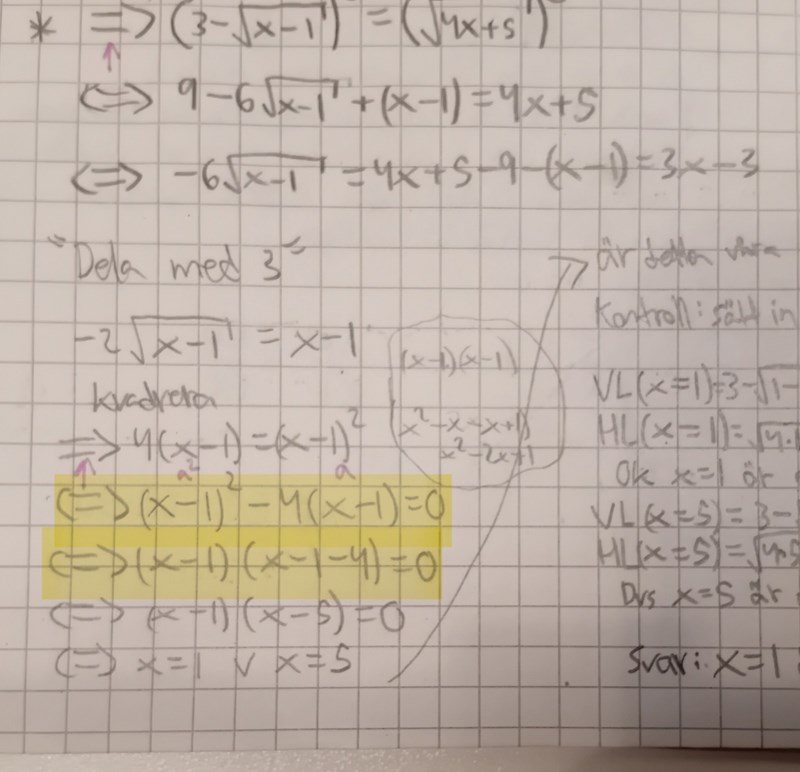 * => (3-√(x-1)) = (√(4x+5))
<=> 9-6√(x-1) + (x-1) = 4x+5
<=> -6√(x-1) = 4x+5-9-(x-1) = 3x-3
"Dela med 3"
-2√(x-1) = x-1
kvadrera
=> 4(x-1) = (x-1)²
a² a
<=> (x-1)² - 4(x-1) = 0
<=> (x-1)(x-1-4) = 0
<=> (x-1)(x-5) = 0
<=> x=1 ∨ x=5
(x-1)(x-1)
x²-x-x+1
x²-2x+1
är detta
Kontroll: sätt in
VL(x=1)=3-√1-
HL(x=1)=√4·
Ok x=1 är
VL(x=5) = 3-
HL(x=5)=√4·5
Dvs x=5 är
Svar: x=1